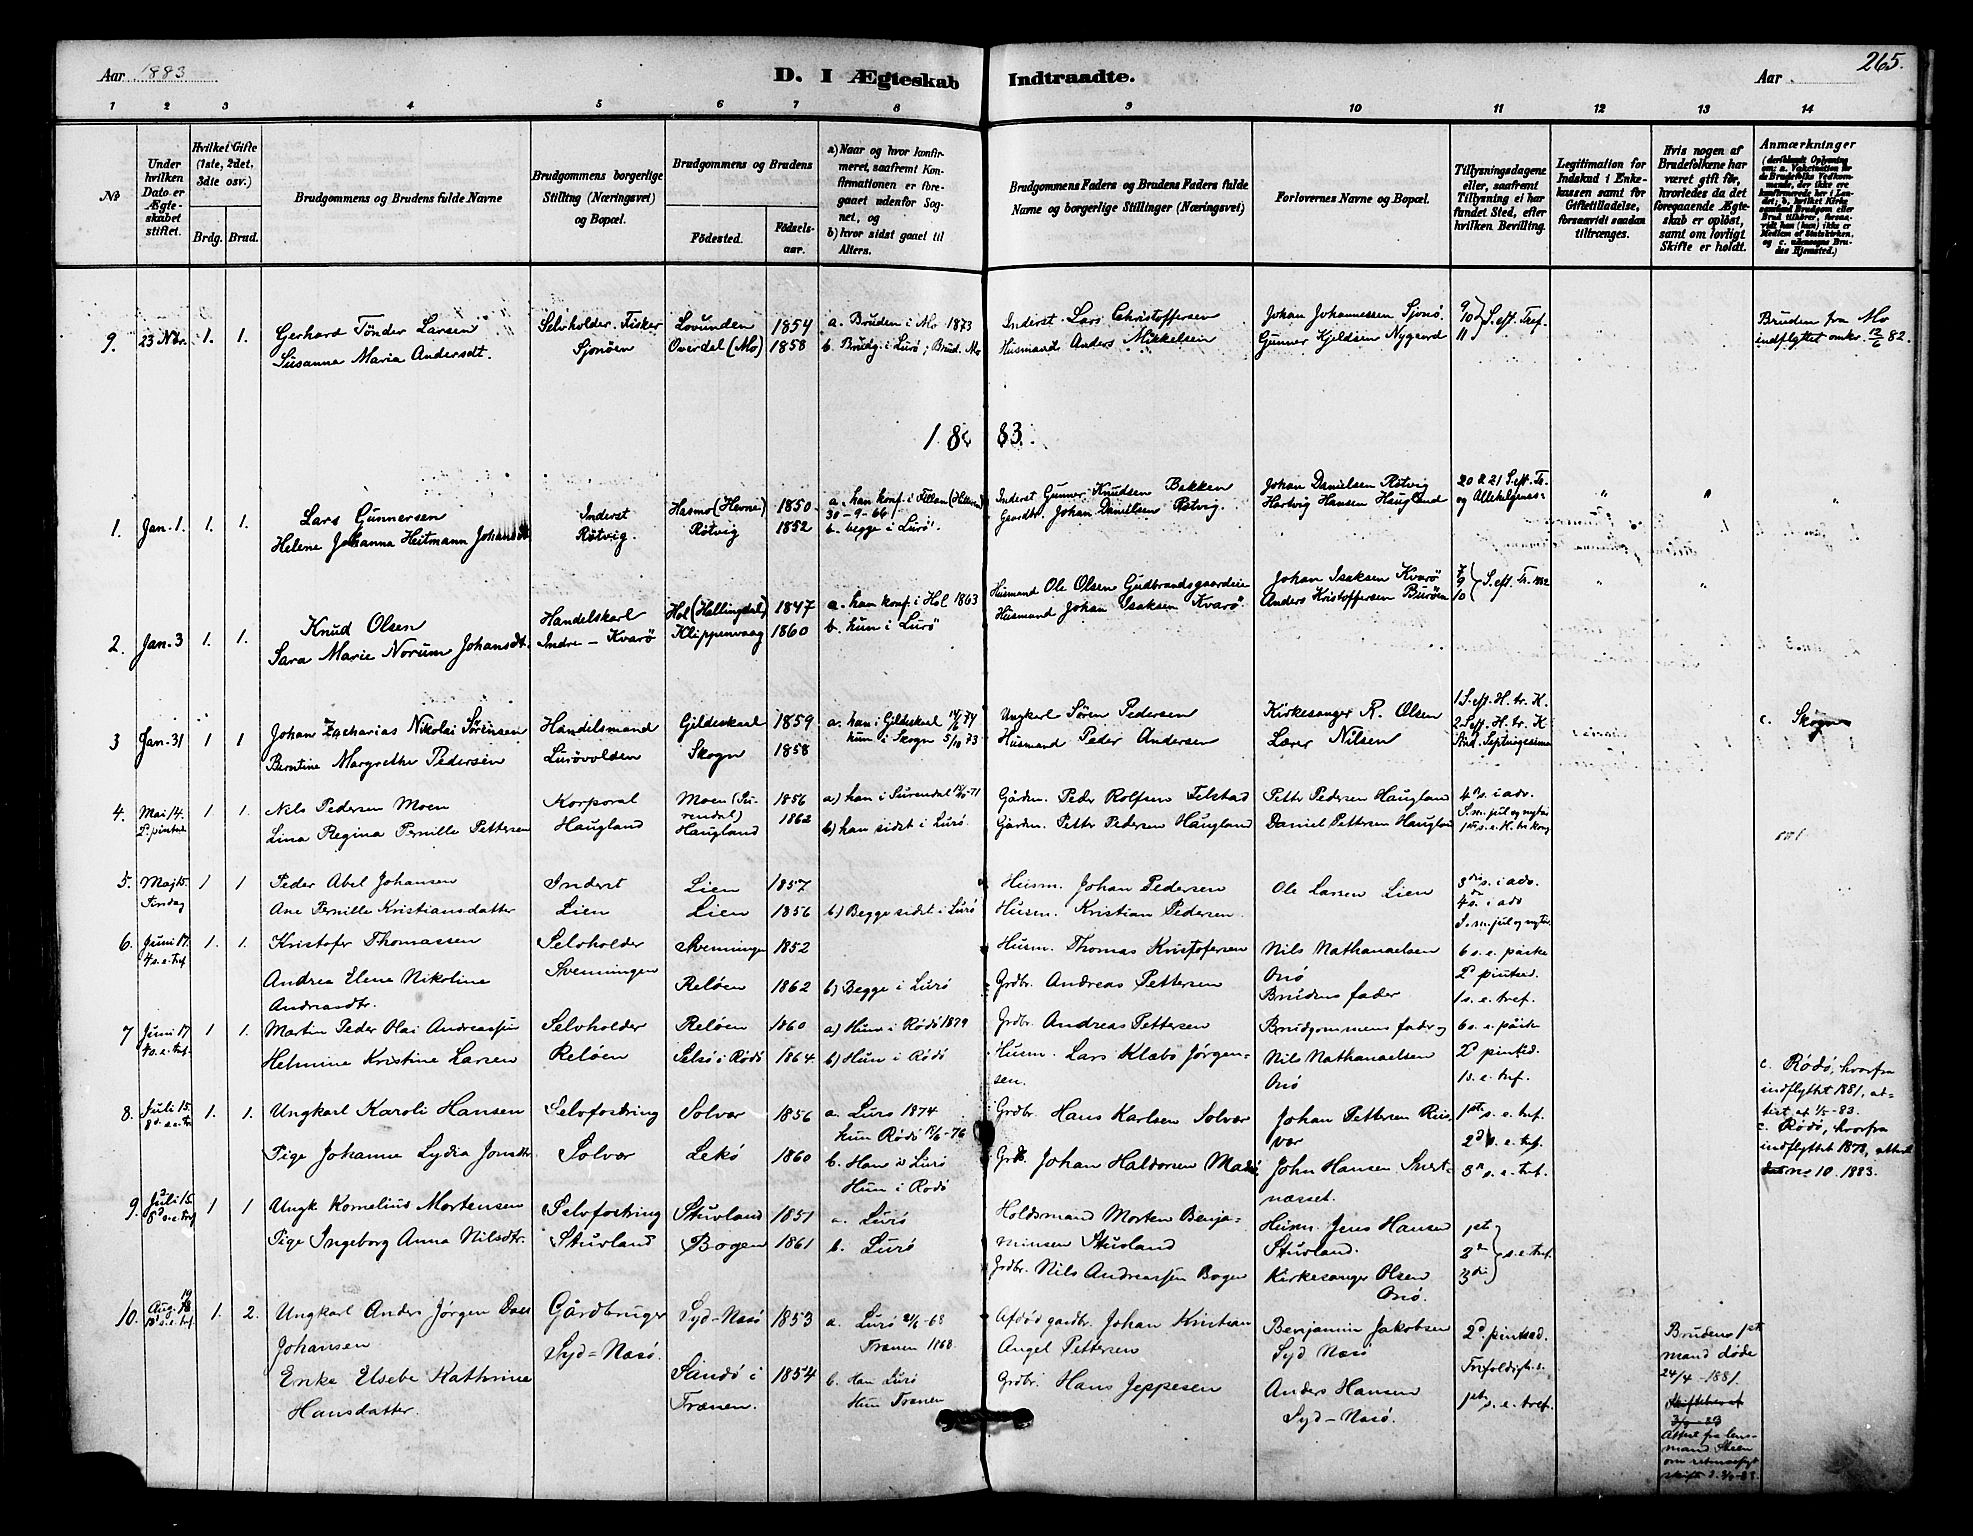 Aar 1883
D. I Ægteskab Indtraadte.
Aar
265.
1 2 3 4 5 6 7 8 9 10 11 12 13 14
№
Under hvilken Dato er Ægteskabet stiftet.
Hvilket Gifte (1ste, 2det, 3die osv.)
Brdg. Brud.
Brudgommens og Brudens fulde Navne
Brudgommens borgerlige Stilling (Næringsvei) og Bopæl.
Brudgommens og Brudens
Födested.
Födselsaar.
a) Naar og hvor konfirmeret, saafremt Konfirmationen er foregaaet udenfor Sognet, og
b) hvor sidst gaaet til Alters.
Brudgommens Faders og Brudens Faders fulde Navne og borgerlige Stillinger (Næringsvei)
Forlovernes Navne og Bopæl.
Tillysningsdagene eller, saafremt Tillysning ei har fundet Sted, efter hvilken Bevilling.
Legitimation for Indskud i Enkekassen samt för Giftetilladelse, forsaavidt saadan tiltrænges.
Hvis nogen af Brudefolkene har været gift för, hvorledes da det foregaaende Ægteskab er oplöst, samt om lovligt Skifte er holdt.
Anmærkninger
9. 23 Nbr. 1. 1.
Gerhard Tönder Larsen
Susanna Maria Andersdt.
Selvholder. Fisker
Sjonöen
Lovunden 1854
Overdal (Mo) 1858
a. Bruden i Mo 1873
b. Brudg. i Lurö; Brud. Mo
Inderst Lars Christoffersen
Husmand Anders Mikkelsen
Johan Johannessen Sjonö.
Gunner Kjeldsen Nygaard
9 10 11 S. eft. Tref.
Bruden fra Mo
indflyttet omkr. 12/6 82.
1883.
1. Jan. 1. 1. 1.
Lars Gunnersen
Helene Johanna Heitmann Johansdt
Inderst
Rötvig.
Hasmo (Hevne) 1850
Rötvig 1852
a. han konf. i Fillan (Hitteren)
30-9-66
b. begge i Lurö.
Inderst Gunner Knudsen Bekken
Gaardbr. Johan Danielsen Rötvig.
Johan Danielsen Rötvig
Hartvig Hansen Haugland
20 & 21 S. eft. Tr.
og Allehelgenes-
2. Jan. 3 1. 1.
Knud Olsen
Sara Marie Norum Johansdt.
Handelskarl
Indre-Kvarö
Hol (Hallingdal) 1847
Klippenvaag 1860
a. han konf. i Hol 1863
b. hun i Lurö
Husmand Ole Olsen Gudbrandsgaardeie
Husmand Johan Isaksen Kvarö.
Johan Isaksen Kvarö
Anders Kristoffersen Buröen
9 10 S. eft. Tr.
3 Jan. 31 1 1
Johan Zacharias Nikolai Sörensen
Berntine Margrethe Pedersen
Handelsmand
Lurövolden
Gildeskaal 1859
Skogn 1858
a. han i Gildeskaal 14/6 74
hun i Skogn 5/10 73
Ungkarl Sören Pedersen
Husmand Peder Andersen
Kirkesanger R. Olsen
Lærer Nilsen
1 S. eft. H. tr. K.
2 S. eft. H. tr. K
c. Skogn
4. Mai 14. 1 1
2. pintsd.
Nils Pedersen Moen
Lina Regina Pernille Pettersen
Korporal
Haugland
Moen (Surendal) 1856
Haugland 1862
a) han i Surendal
b) han sidst i Lurö.
Gårdm. Peder Rolfsen Telstad
Gårdm. Petter Pedersen Haugland
Petter Pedersen Haugland
Daniel Pettersen Haugland
4 s. i adv.
S. m. jul og nytår
1ste s. e. H. tr. kong
5. Maj 15. 1 1
Peder Abel Johansen
Ane Pernille Kristiansdatter
Inderst
Lien
Lien 1857
Lien 1856
b) Begge sidst i Lurö
Husm. Johan Pedersen
Husm. Kristian Pedersen.
Ole Larsen Lien
3die s. i adv.
4 s. i adv
S. m. jul og nytår
6. Juni 17. 1. 1.
4 s. e. tref.
Kristofer Thomassen
Andrea Elene Nikoline
Andreasdtr.
Selvholder
Svenningen
Svenningen 1852
Reløen 1862
b) Begge i Lurö
Husm. Thomas Kristofersen
Grdbr. Andreas Pettersen
Nils Nathanaelsen
Onö
Brudens fader
6 s. e. påske
2d pintsd.
1 s. e. tref.
7 Juni 17 1 1.
4 s. e. tref.
Martin Peder Olai Andreassen
Helmine Kristine Larsen
Selvholder
Reløen
Reløen 1860
Selsö i Rödö 1864
a) Hun i Rödö 1879
b) Hun i Rödö
Grdbr. Andreas Pettersen
Husm. Lars Klæbo Jörgensen.
Brudgommens fader og
Nils Nathanaelsen
Onö
6 s. e. påske
2d pintsd.
1 s. e. tref.
c. Rödö, hvorfra
indflyttet 1881, attist af 1/5-83.
8. Juli 15. 1. 1.
8d s. e. tr
Ungkarl Karoli Hansen
Pige Johanne Lydia Jonsdtr.
Selvfostring
Solvær
Solvær 1856
Lekö 1860
a. Lurö 1874
hun Rödö 18/6-76
b. Han i Lurö
Hun i Rödö
Grdbr. Hans Karlsen Solvær
Grdb. Johan Haldorsen
Johan Pettersen
John Hansen
næsset.
1ste s. e. tref.
2d s. e. tref.
3d s. e. tref.
c. Rödö, hvorfra
indflyttet 1878,
10. 1883.
9. Juli 15. 1 1
8d s. e. tref
Ungk Kornelius Mortensen
Pige Ingeborg Anna Nilsdtr.
Selvfostring
Stuvland
Stuvland 1851
Bogen 1861
a. Lurö
b. Lurö
Holdsmand Morten Benjaminsen Stuvland
Grdbr. Nils Andreassen Bogen
Husm. Jens Hansen
Stuvland.
Kirkesanger Olsen
Onö.
1st 2d 3di s. e. tref.
10. Aug. 19 1. 2.
Ungkarl Anders Jörgen Dass
Johansen
Enke Elsebe Kathrine
Hansdatter.
Gårdbruger
Syd-Næsö.
Syd-Næsö 1853
Sandö i 1854
Trænen.
a. Lurö 21/6-68
Trænen 1868.
b. Han Lurö
Hun Trænen
Afdöd gardbr. Johan Kristian
Angel Pettersen
Grdbr. Hans Jeppesen
Benjamin Jakobsen
Syd Næsö
Anders Hansen
Syd-Næsö.
2d. pintsd.
Trefoldigh.s.
1ste s. e. tref.
Brudens 1ste
mand döde
24/4-1881.
Attest fra lensmand Steen